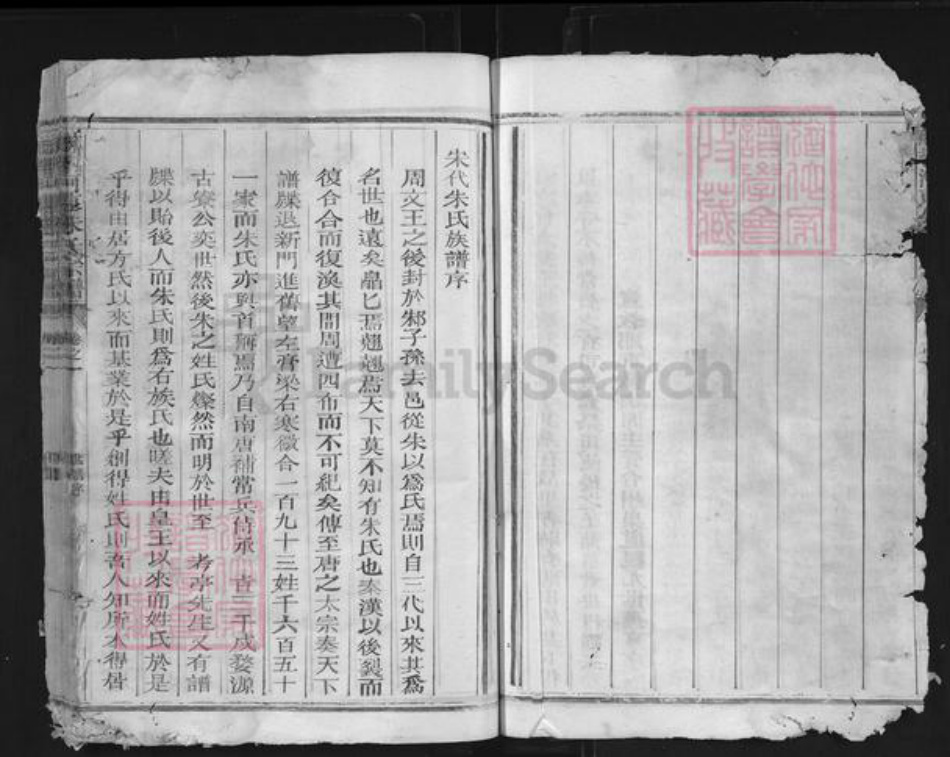 宋代朱氏族譜序
周文王之後封於邾子孫去邑從朱以為氏焉則自三代以來其為
名世也遠矣皛匕焉翹翹焉天下莫不知有朱氏也秦漢以後裂而
復合合而復渙其間周遭四布而不可紀矣傳至唐之太宗奏天下
譜牒退新門進舊望左膏梁右寒微合一百九十三姓千六百五十
一家而朱氏亦與首稱焉乃自南唐補常兵侍承 三于戍婺源
古寮公奕世然後朱之姓氏燦然而明於世至 考亭先生又有譜
牒以貽後人而朱氏則為右族氏也嗟夫由皇王以來而姓氏於是
乎得由居方氏以來而基業於是乎創得姓氏則吾人知所本得居
FamilySearch